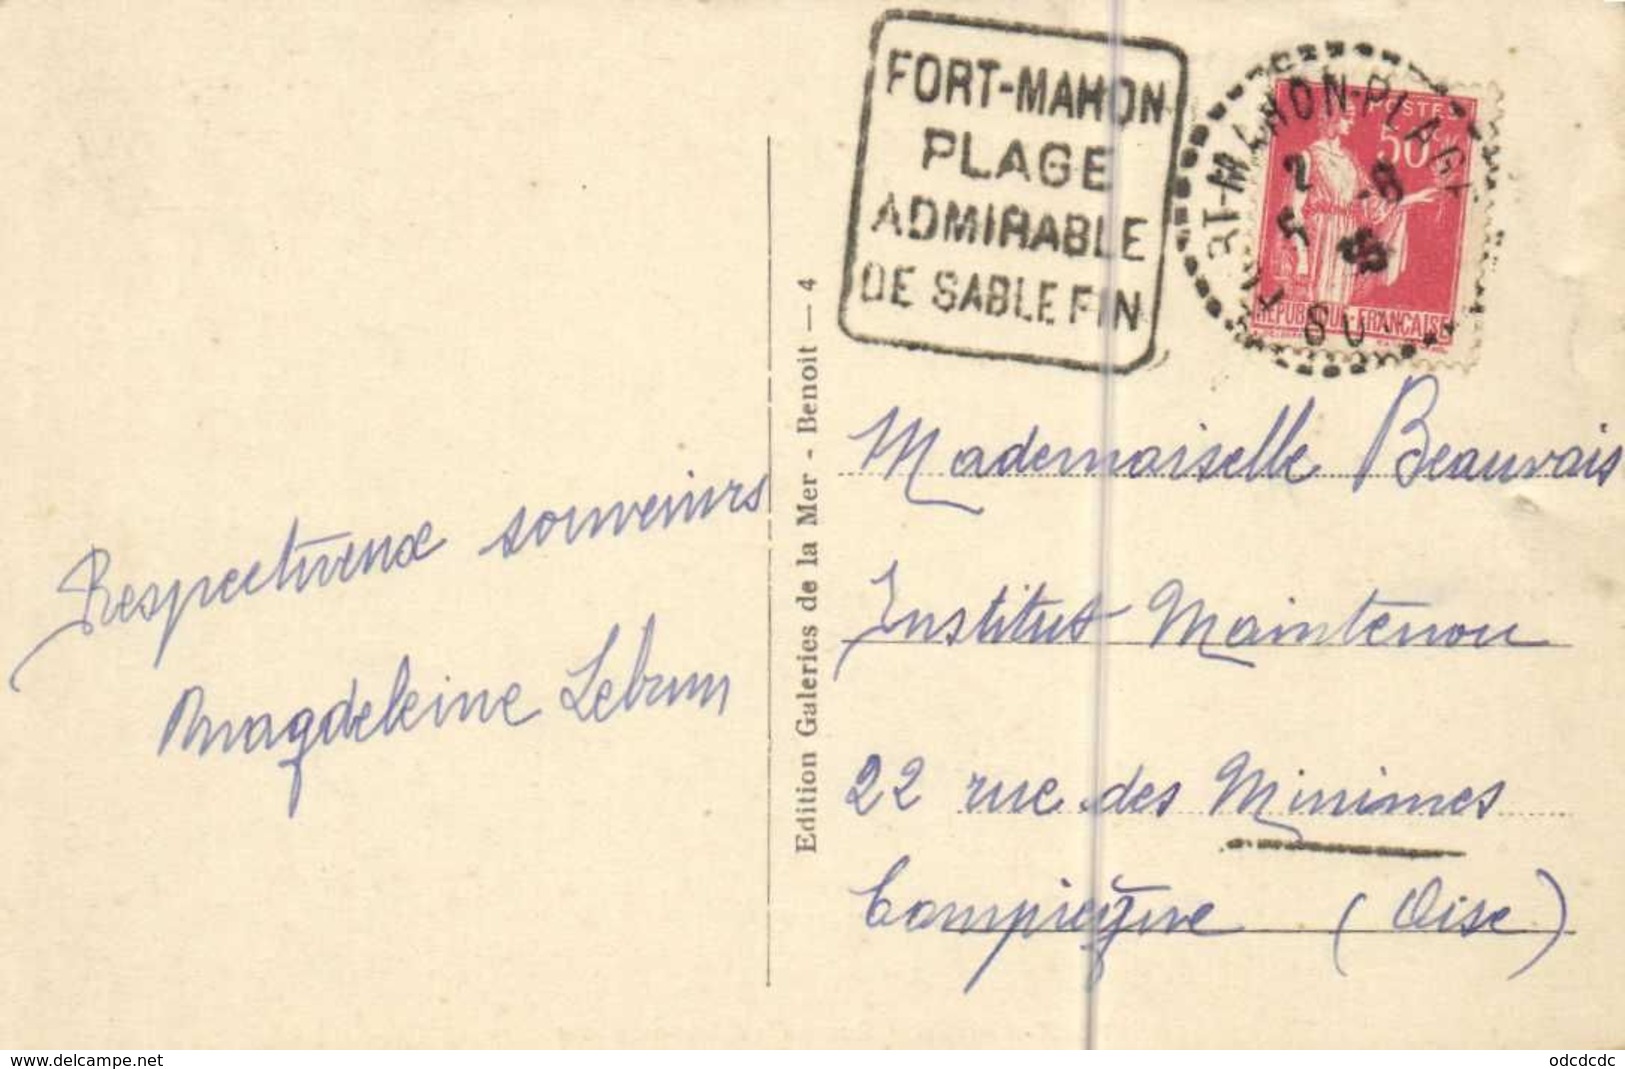 FORT-MAHON
PLAGE
ADMIRABLE
DE SABLE FIN
RT-MAHON-PLAGE
POSTES
50
RÉPUBLIQUE FRANÇAISE
Respectueux souvenirs
Magdeleine Lebrun
Edition Galeries de la Mer - Benoit — 4
Mademoiselle Beauvais
Institut Maintenon
22 rue des Minimes
Compiègne (Oise)
www.delcampe.net
odcdcdc